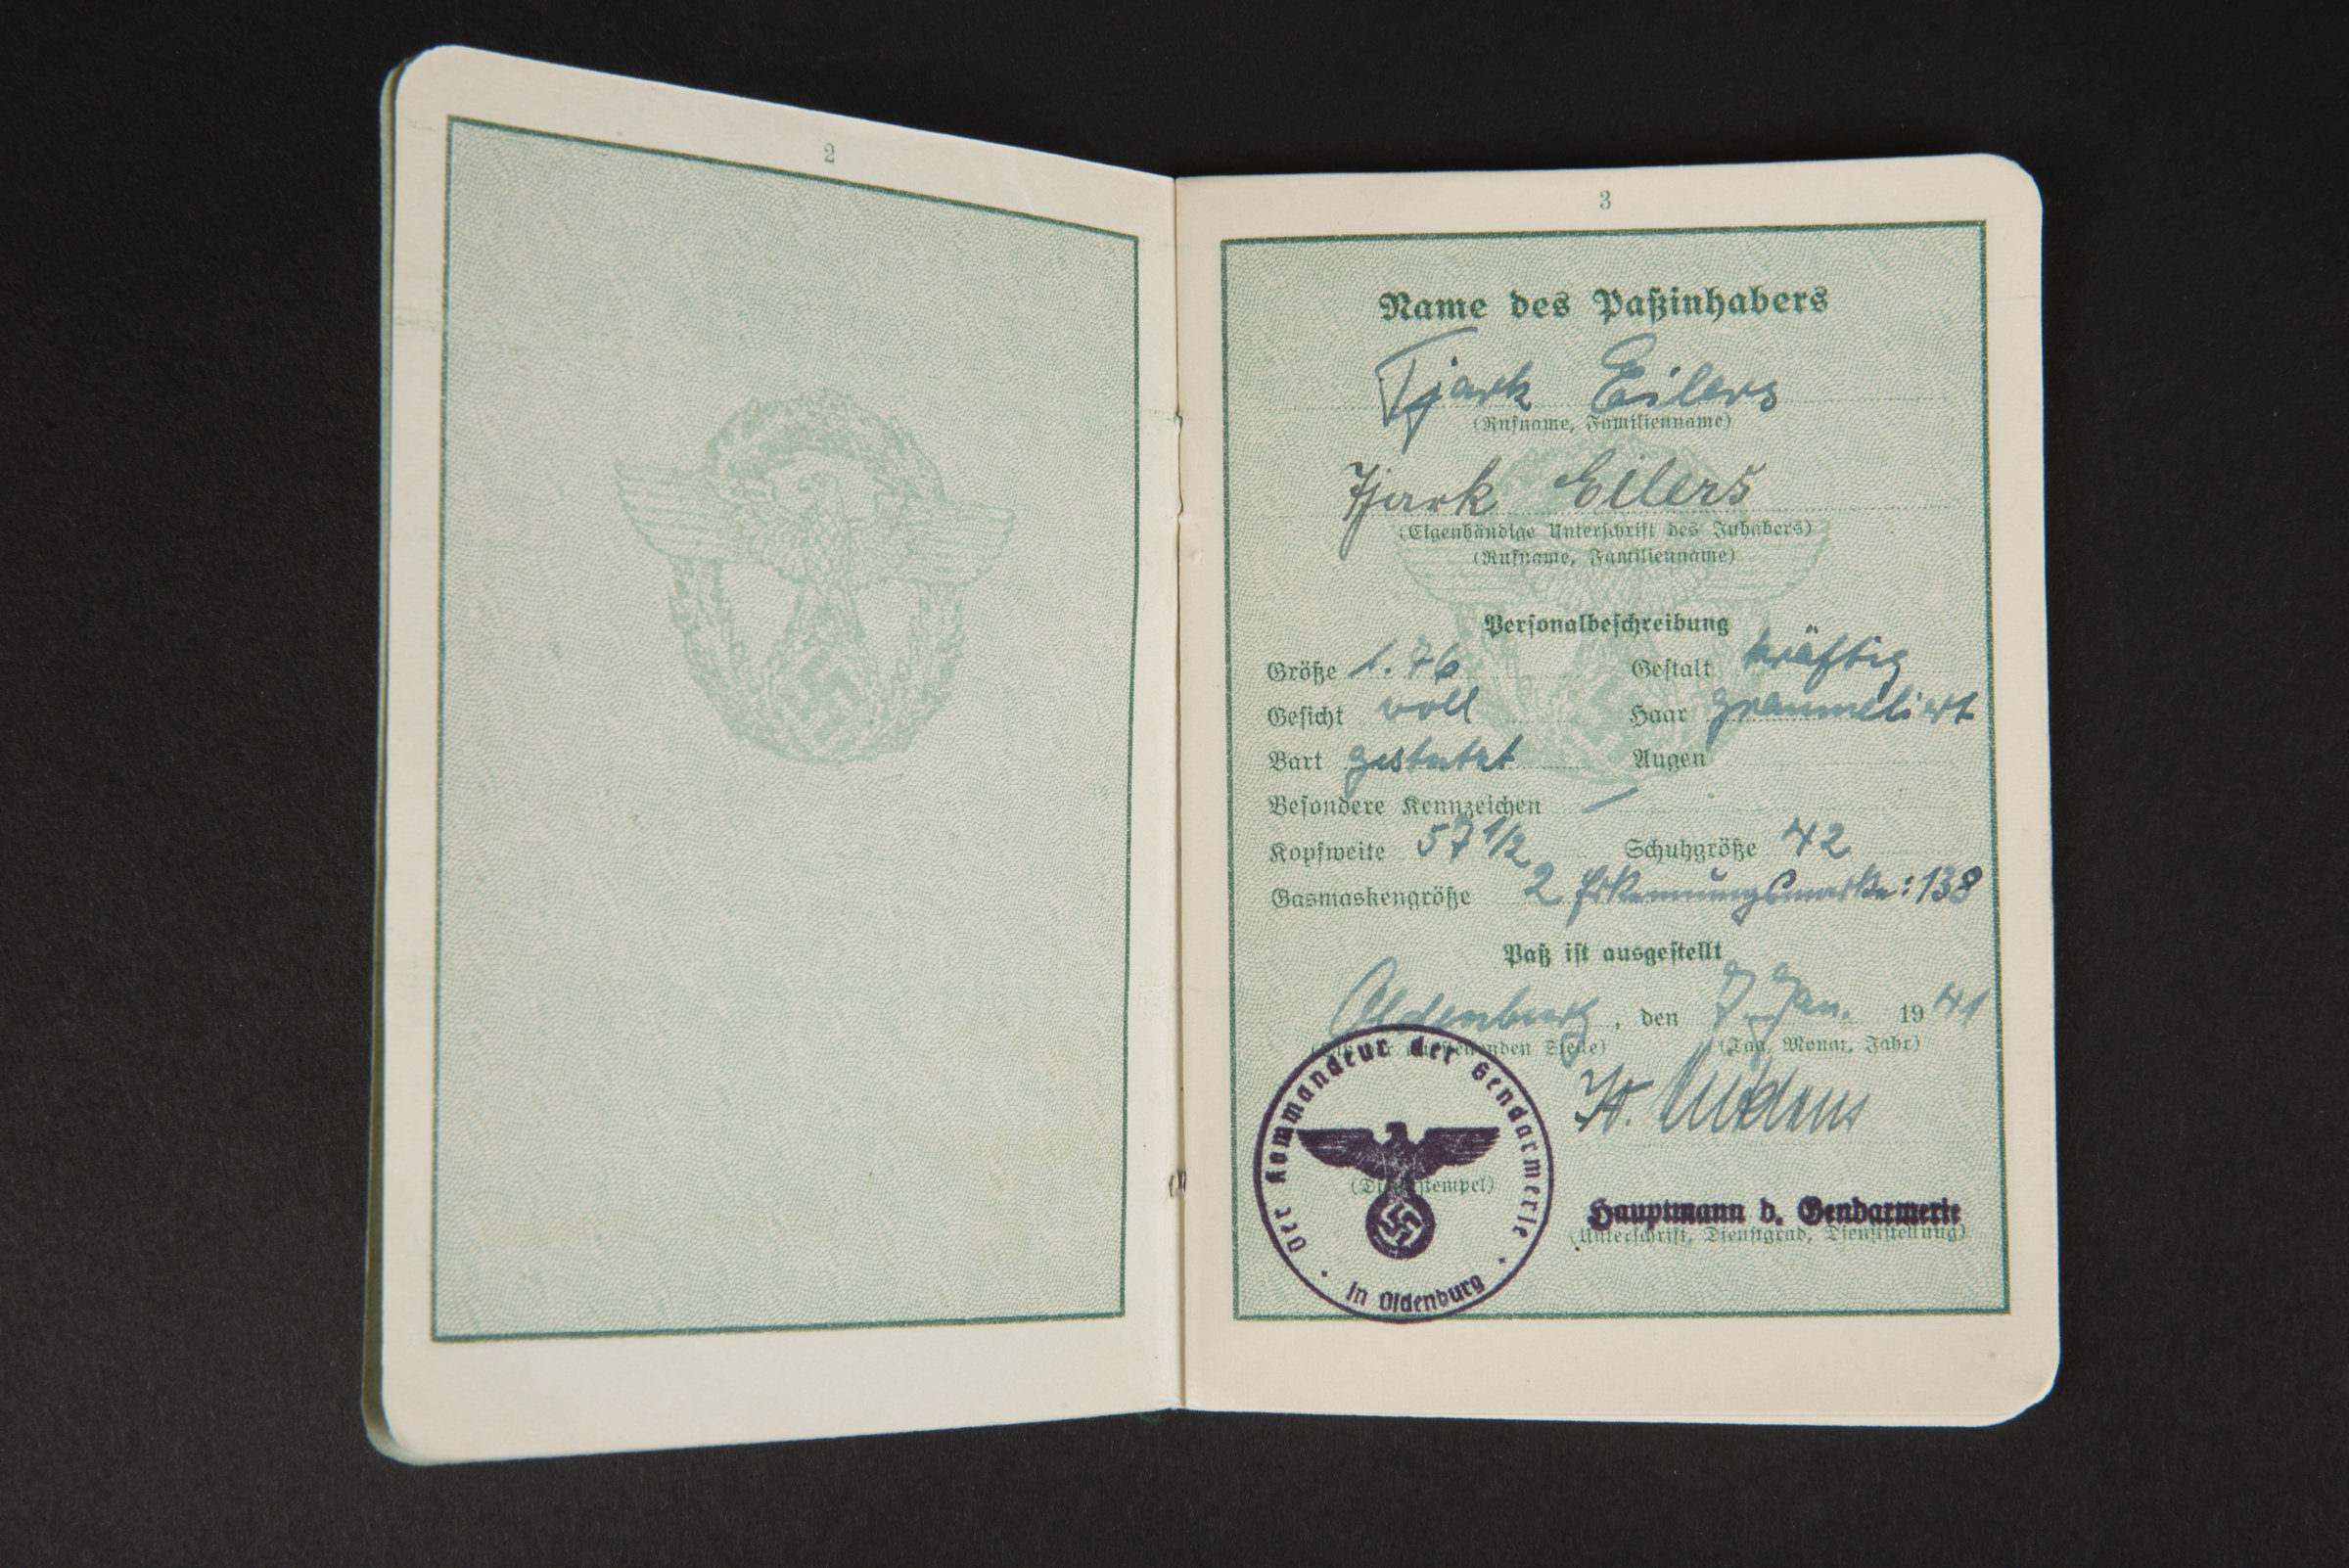 2
3
Name des Paßinhabers
Tjark Eilers
(Rufname, Familienname)
Tjark Eilers
(Eigenhändige Unterschrift des Inhabers)
(Rufname, Familienname)
Personalbeschreibung
Größe 1.76 Gestalt kräftig
Gesicht voll Haar graumeliert
Bart gestutzt Augen
Besondere Kennzeichen —
Kopfweite 57 1/2 Schuhgröße 42
Gasmaskengröße 2 Erkennungsmarke: 138
Paß ist ausgestellt
Oldenburg, den 7. Jan. 1941
(Sitz der ausstellenden Stelle) (Tag, Monat, Jahr)
Der Kommandeur der Gendarmerie
(Dienststempel)
in Oldenburg
Hauptmann d. Gendarmerie
(Unterschrift, Dienstgrad, Dienststellung)